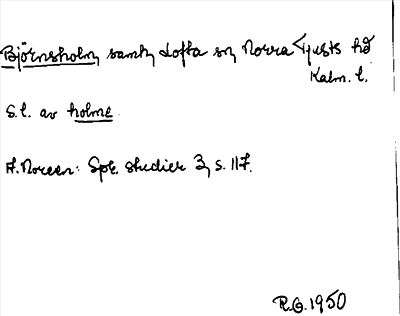 Björnsholm, samt Lofta sn, Norra Tjusts hd
Kalm. l.
S.l. av holme.
A. Noreen: Spr. studier 3, s. 117.
R.G. 1950